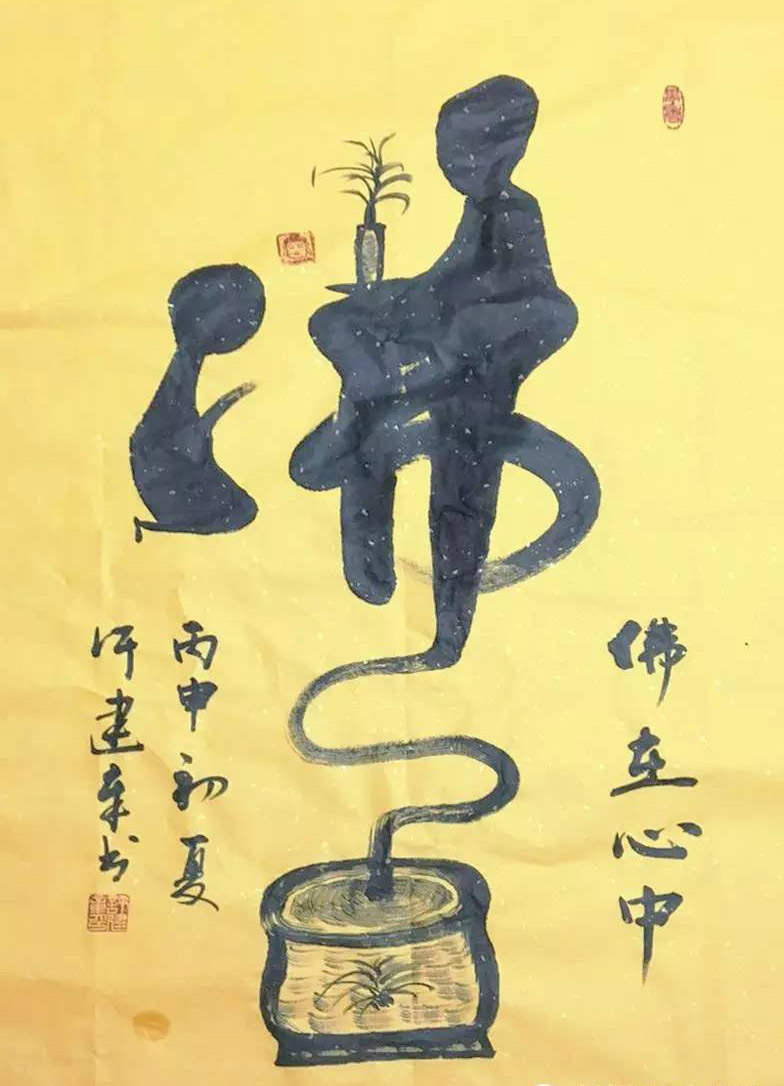 佛
佛在心中
丙申初夏
许建章书